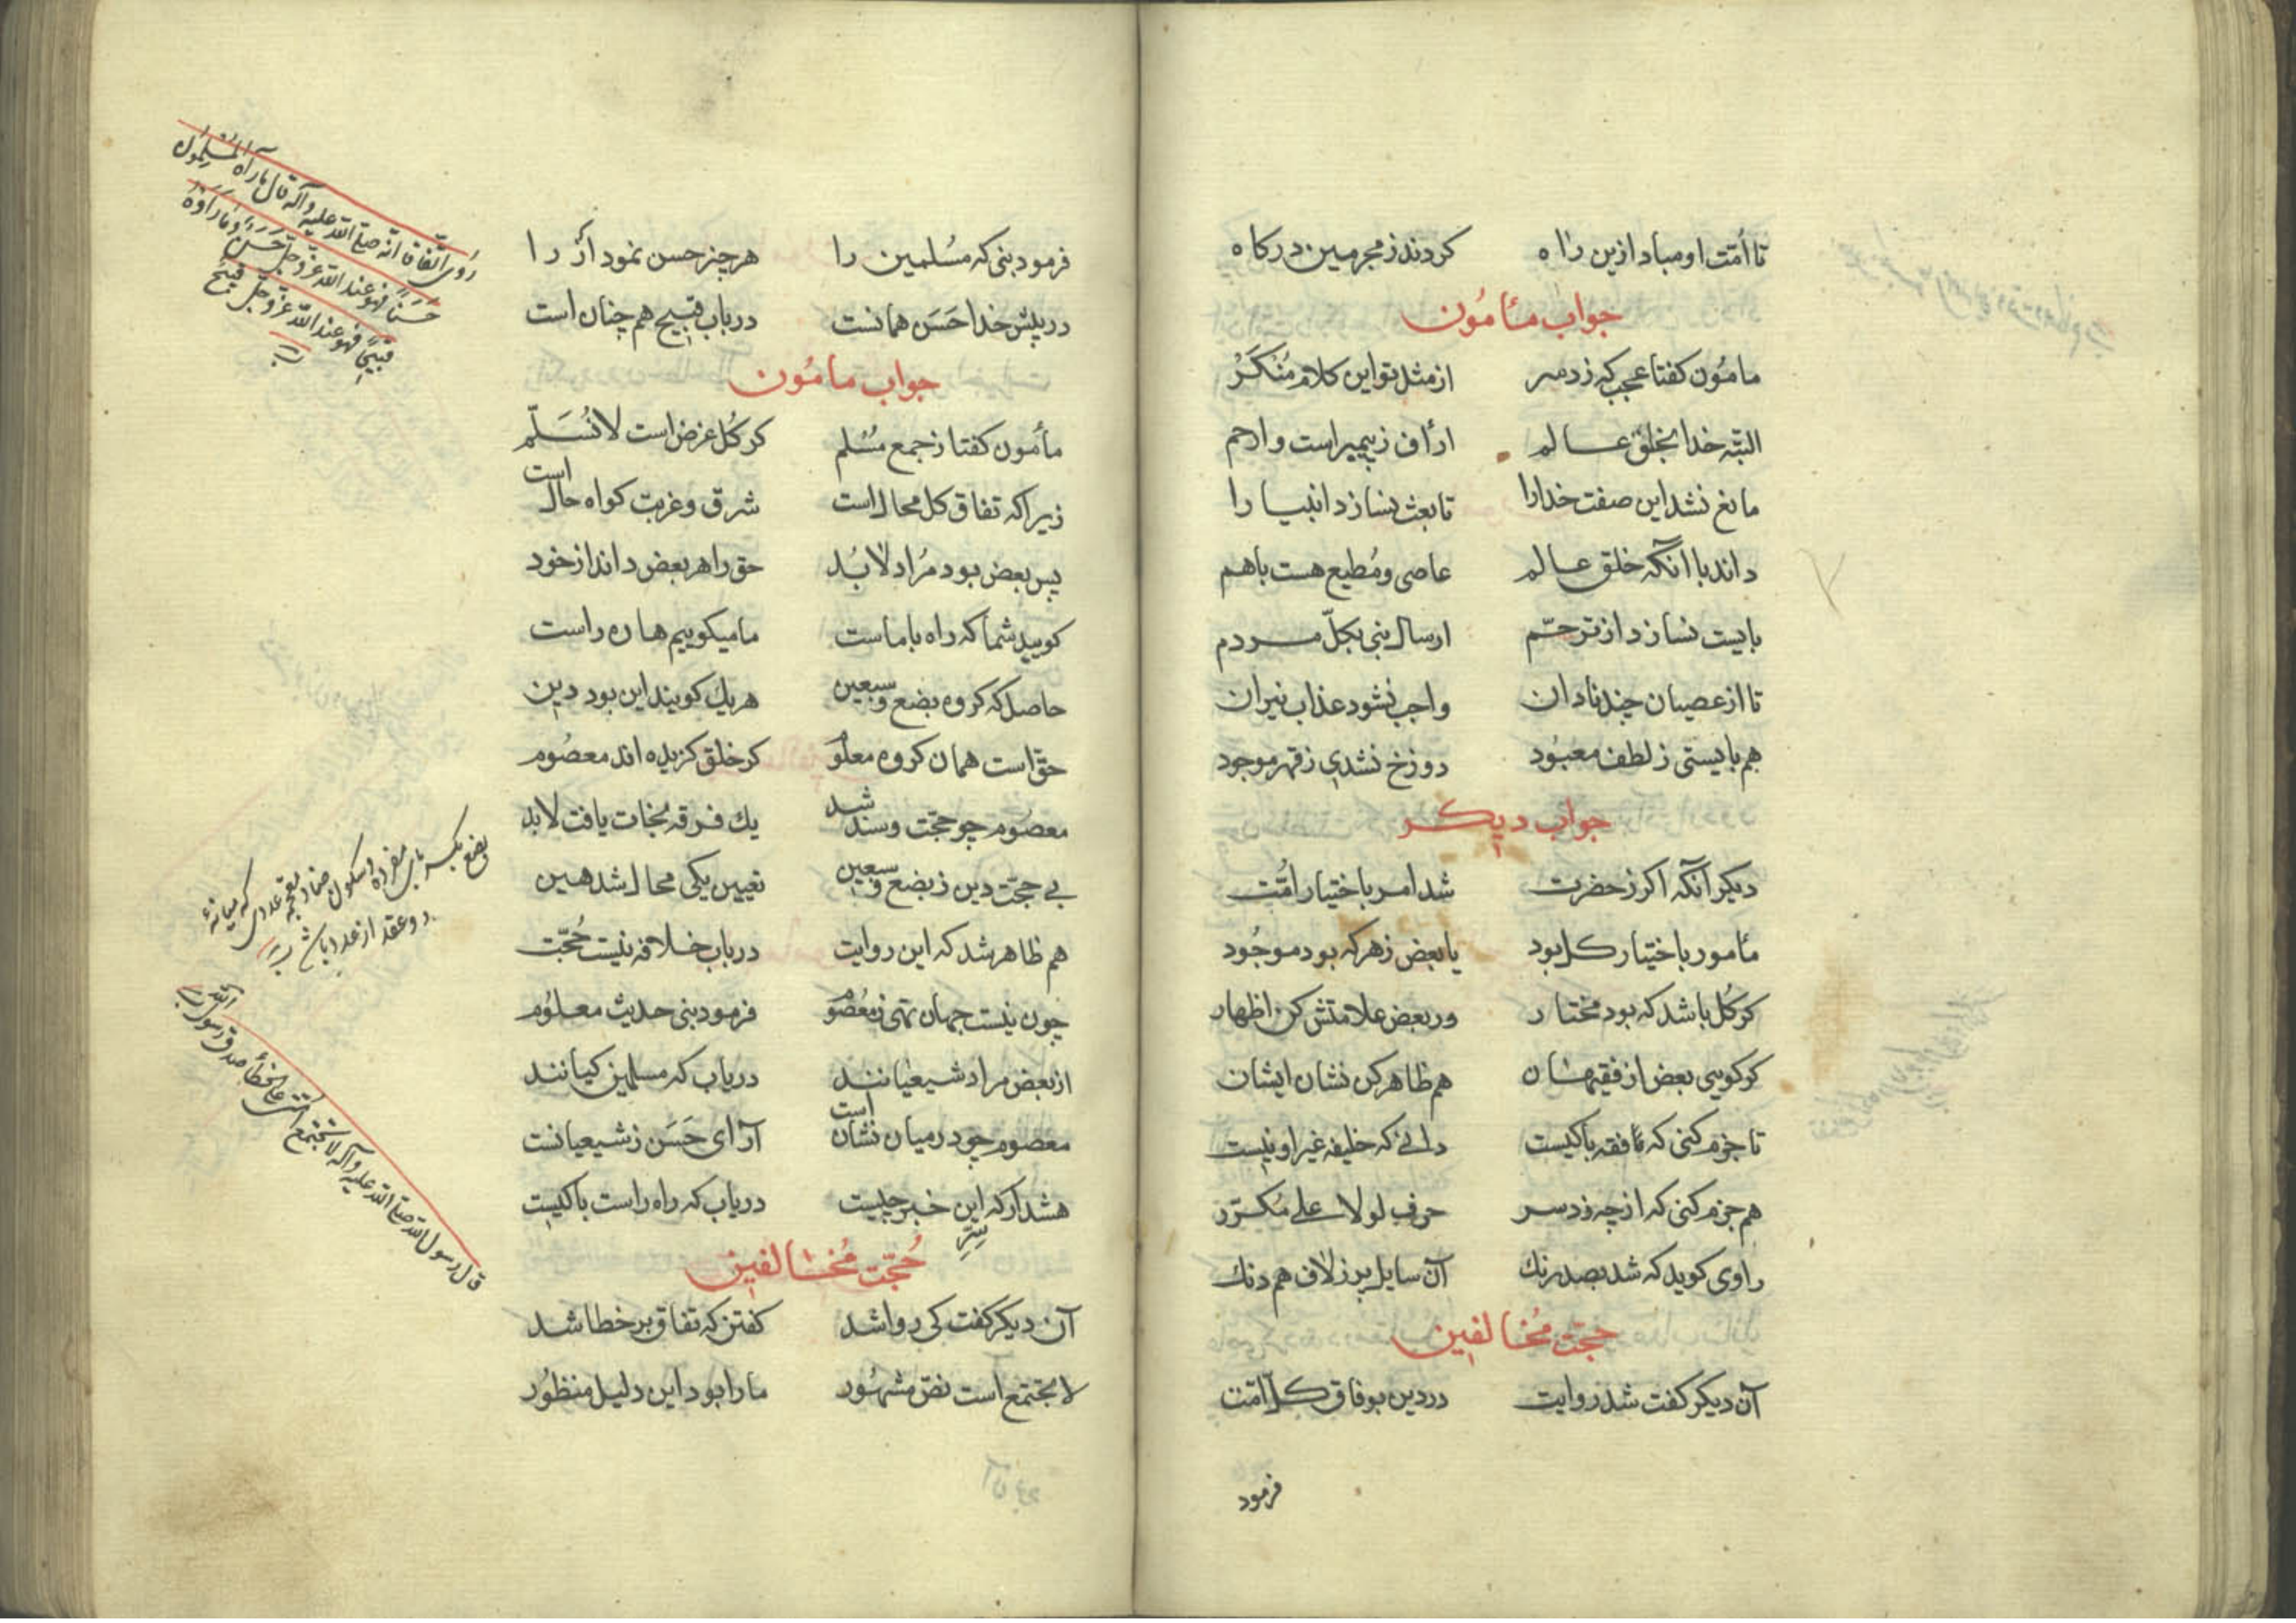 تا امت او مباد ازین راه کردند ز مجرمین درکاه
جواب مأمون
مامون کفتا عجب که زد سر از مثل تو این کلام منکر
البته خدا بخلق عالم اراف ز پیمبر است و ارحم
مانع نشد این صفت خدارا تا بعث نسازد انبیا را
داند با آنکه خلق عالم عاصی و مطیع هست باهم
بایست نسازد از ترحم ارسال نبی بکل مردم
تا از عصیان چند نادان واجب نشود عذاب نیران
هم بایستی ز لطف معبود دوزخ نشدی ز قهر موجود
جواب دیکر
دیکر آنکه اکر ز حضرت شد امر باختیار امت
مأمور باختیار کل بود یا بعض ز هر که بود موجود
کر کل باشد که بود مختار ور بعض علامتش کن اظهار
کر کویی بعض از فقیهان هم ظاهر کن نشان ایشان
تا جزم کنی که فقه با کیست دانی که خلیفه غیر او نیست
هم جزم کنی که از چه زد سر حرف لولا علی مکرر
راوی کوید که شد بصد رنک آن سایل پر ز لاف هم دنک
حجت مخالفین
آن دیکر کفت شد روایت در دین بوفاق کل امت
فرمود
فرمود نبی که مسلمین را هر چیز حسن نمود از را
در پیش خدا حَسَن همانست در باب قبیح هم چنان است
جواب مامون
مأمون کفتا ز جمع مسلم کر کل غرض است لا نسلّم
زیرا که تفاق کل محال است شرق و غربت کواه حال است
پس بعض بود مراد لابد حق را هر بعض داند از خود
کویید شما که راه با ماست ما میکوییم ها ره راست
حاصل که کروه بضع و سبعین هر یك کویند این بود دین
حق است همان کروه معلوم کر خلق کزیده اند معصوم
معصوم چو حجت و سند شد یك فرقه نجات یافت لابد
بی حجت دین ز بضع و سبعین تعیین یکی محال شد هین
هم ظاهر شد که این روایت در باب خلافه نیست حجت
چون نیست جهان تهی ز معصوم فرمود نبی حدیث معلوم
از بعض مراد شیعیانند دریاب که مسلمین کیانند
معصوم چو در میان نشان است آرای حَسَن ز شیعیانست
هشدار که این خبر چیست دریاب که راه راست با کیست
سرّ
حجت مخالفین
آن دیکر کفت کی روا شد کفتن که تفاق بر خطا شد
لا تجتمع است نص مشهور ما را بود این دلیل منظور
روی اتفاقا انه صلی الله علیه وآله قال ما رآه المسلمون
حسنًا فهو عند الله عز وجل حسن وما راوه
قبیحًا فهو عند الله عز وجل قبیح
بضع بکسر بای مفرده و سکون ضاد معجمه عددی که میانهٔ
دو عقد از عدد باشد
قال رسول الله صلی الله علیه وآله لا تجتمع امتی علی الخطأ صدق رسول الله